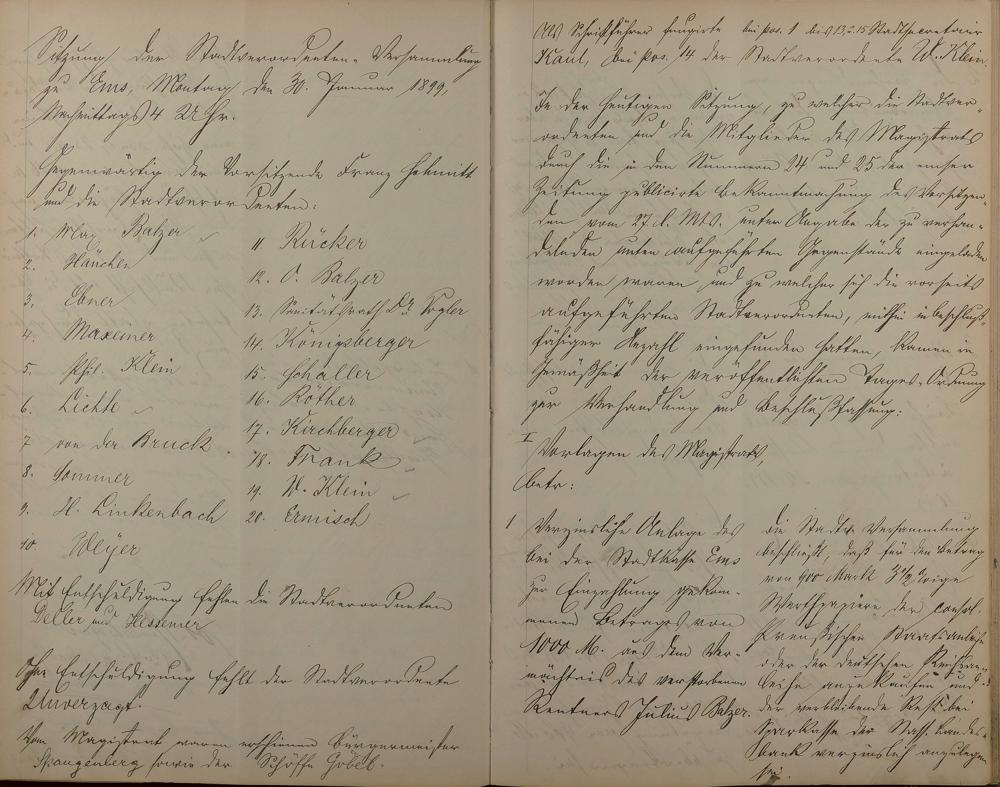 Sitzung der Stadtverordneten-Versammlung
zu Ems, Montag den 30. Januar 1899,
Nachmittags 4 Uhr.
Gegenwärtig der Vorsitzende Franz Schmitt
und die Stadtverordneten:
1. Max Balzer
2. Hänchen
3. Ebner
4. Maxeiner
5. Phil. Klein
6. Lichte
7 von der Bruck
8. Sommer
9. H. Linkenbach
10. Weyer
11 Rücker
12. O. Balzer
13. Sanitätsrath Dr Vogler
14. Königsberger
15. Schaller
16. Röther
17. Kirchberger
18. Frank
19. W. Klein
20. Ermisch
Mit Entschuldigung fehlen die Stadtverordneten
Deller und Hessemer
Ohne Entschuldigung fehlt der Stadtverordnete
Unverzagt.
Vom Magistrat waren erschienen Bürgermeister
Spangenberg sowie der Schöffe Göbel.
Als Schriftführer fungirte bei pos. 1 bis 13 u. 15 Stadtsecretair
Kaul, bei pos. 14 der Stadtverordnete W. Klein.
In der heutigen Sitzung, zu welcher die Stadtver-
ordneten und die Mitglieder des Magistrats
durch die in den Nummern 24 und 25 der emser
Zeitung publicirte Bekanntmachung des Vorsitzen-
den vom 27. d. Mts. unter Angabe der zu verhan-
delnden unten aufgeführten Gegenstände eingeladen
worden waren und zu welcher sich die vorseits
aufgeführten Stadtverordneten, mithin in beschluß-
fähiger Anzahl eingefunden hatten, kamen in
Gemäßheit der veröffentlichten Tages-Ordnung
zur Verhandlung und Beschlußfassung:
I Vorlagen des Magistrats,
betr:
1 Verzinsliche Anlage des
bei der Stadtkasse Ems
zur Einzahlung gekom-
menen Betrages von
1000 M. aus dem Ver-
mächtnis des verstorbenen
Rentners Julius Balzer.
Die Stadtv. Versammlung
beschließt, daß für den Betrag
von 900 Mark 3½ %ige
Werthpapiere der consol.
Preußischen Staatsanleihe
oder der deutschen Reichsan-
leihe anzukaufen und
der verbleibende Rest bei
Sparkasse der Nass. Landes-
bank verzinslich anzulegen
sei.